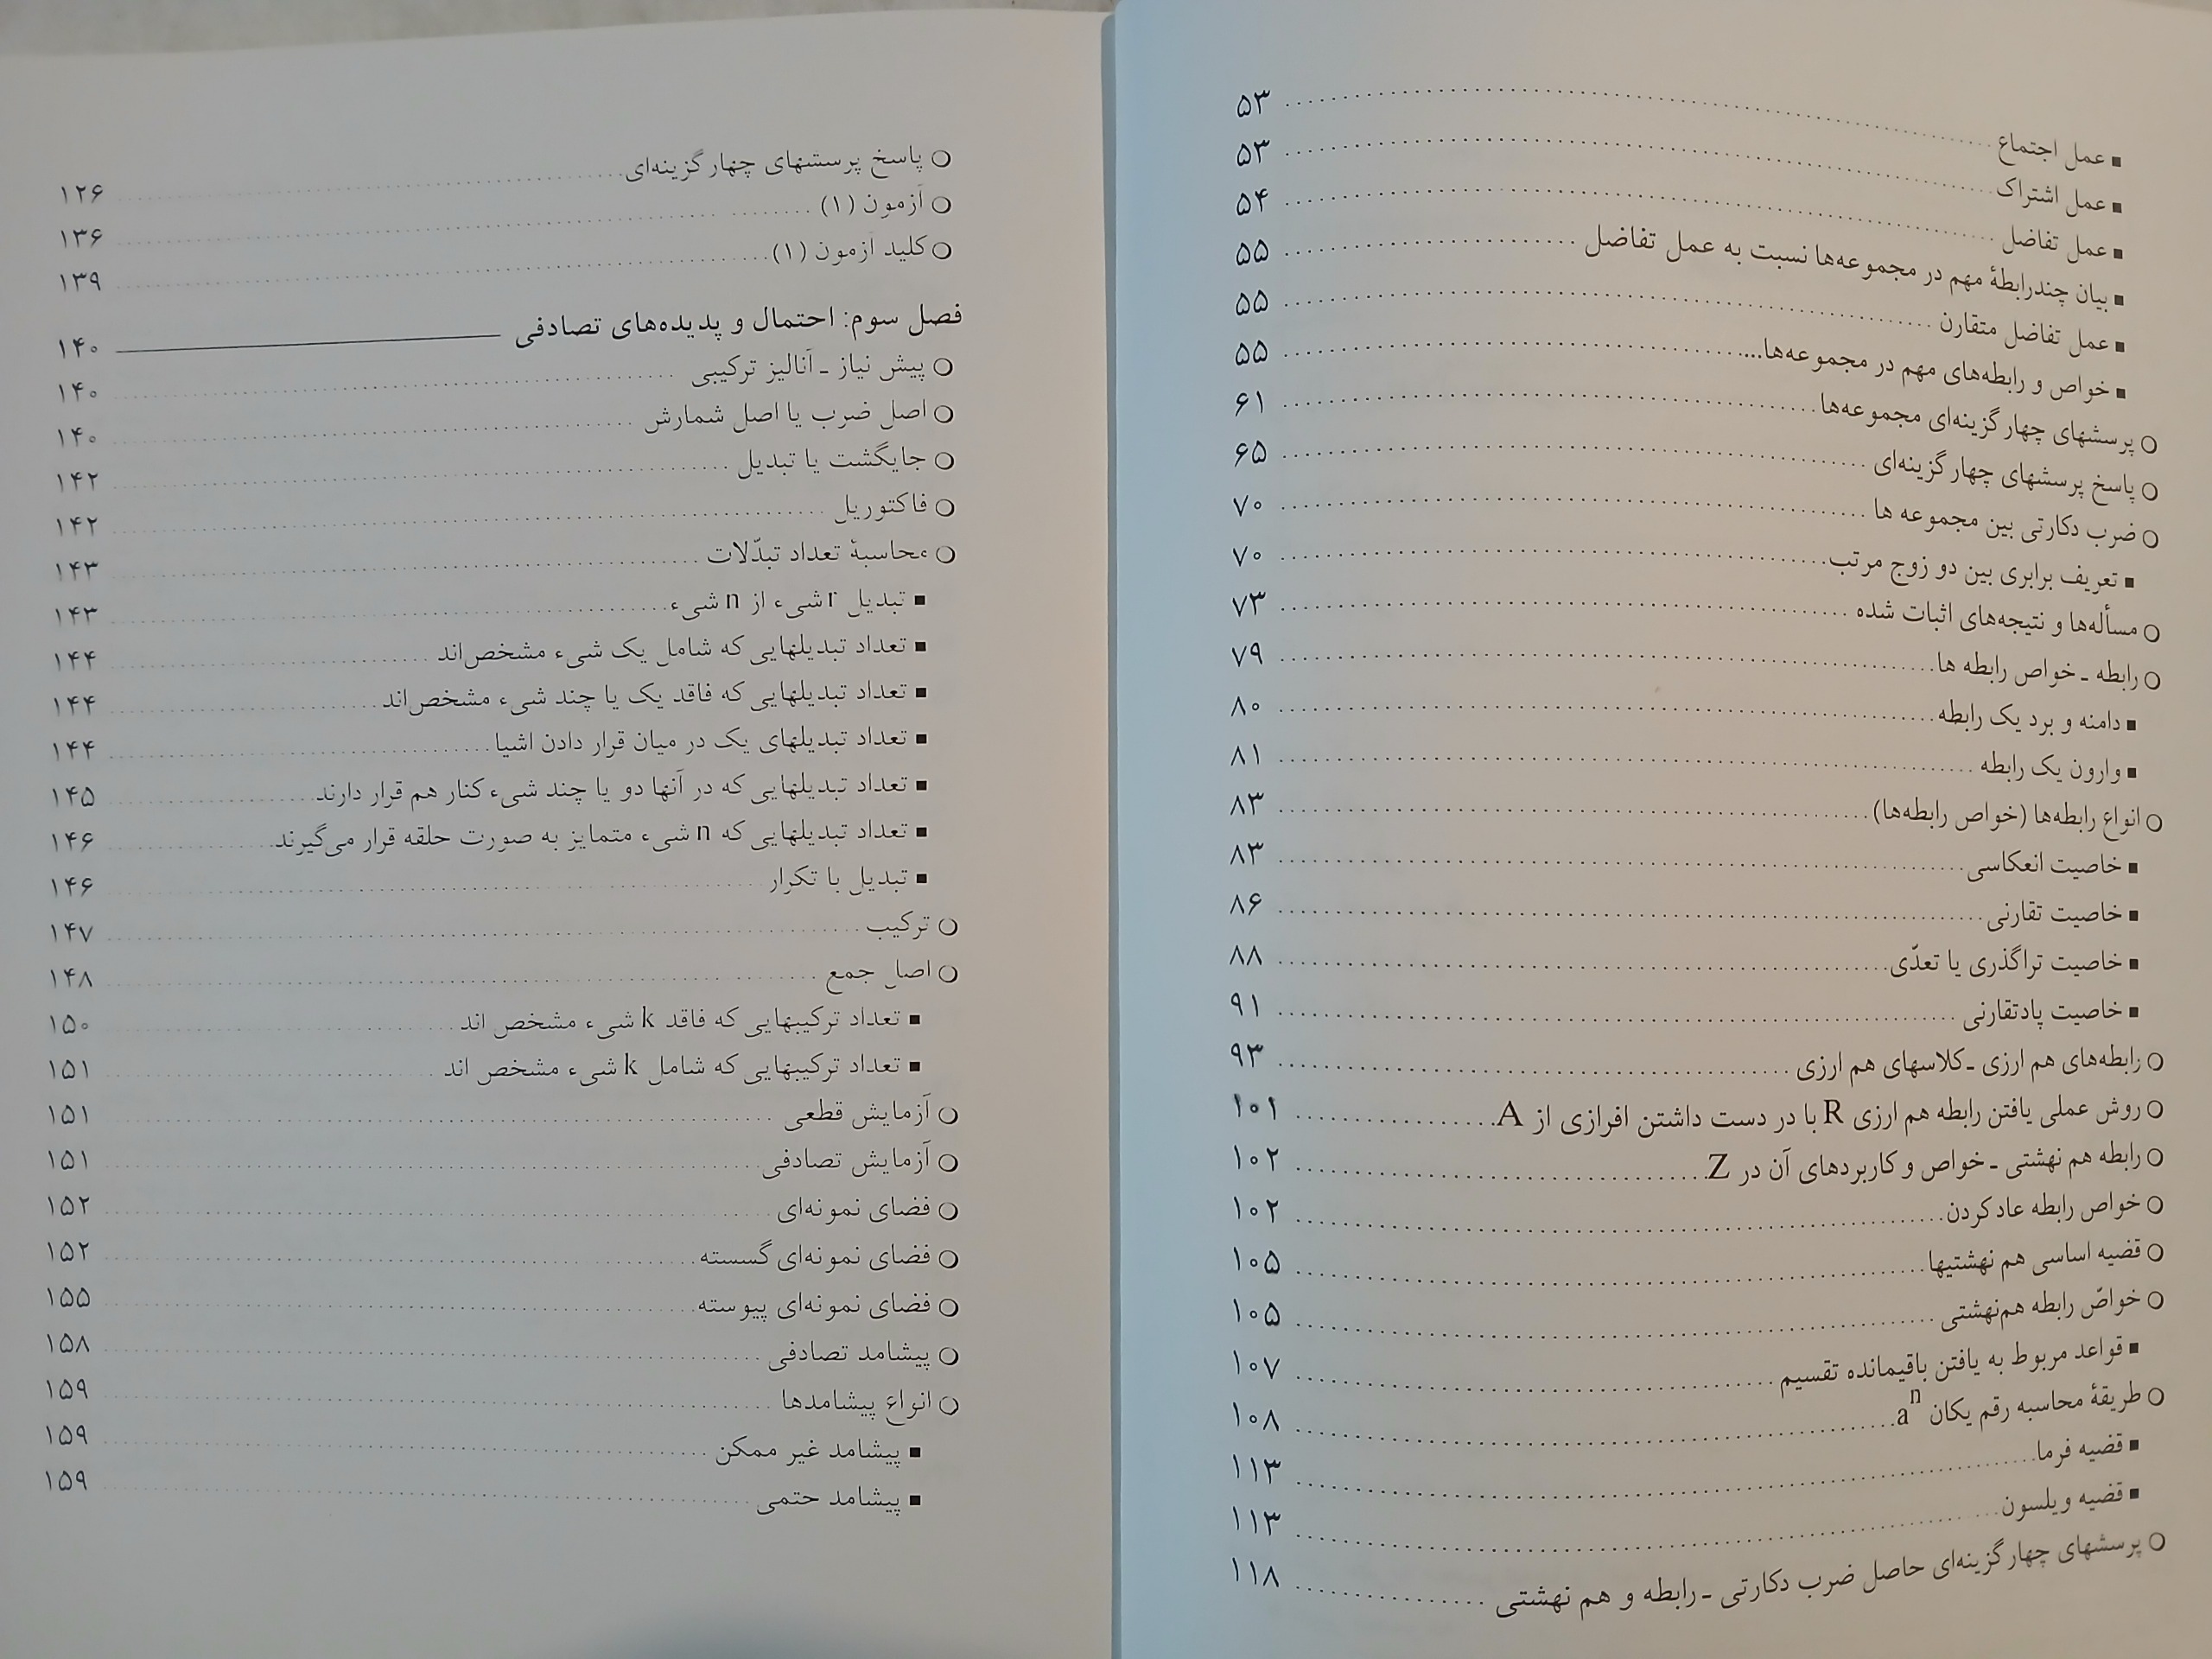 ▪ عمل اجتماع ........ ۵۳
▪ عمل اشتراک ........ ۵۳
▪ عمل تفاضل ........ ۵۴
▪ بیان چندرابطهٔ مهم در مجموعه‌ها نسبت به عمل تفاضل ........ ۵۵
▪ عمل تفاضل متقارن ........ ۵۵
▪ خواص و رابطه‌های مهم در مجموعه‌ها... ........ ۵۵
○ پرسشهای چهارگزینه‌ای مجموعه‌ها ........ ۶۱
○ پاسخ پرسشهای چهارگزینه‌ای ........ ۶۵
○ ضرب دکارتی بین مجموعه ها ........ ۷۰
▪ تعریف برابری بین دو زوج مرتب ........ ۷۰
○ مسأله‌ها و نتیجه‌های اثبات شده ........ ۷۳
○ رابطه ـ خواص رابطه ها ........ ۷۹
▪ دامنه و برد یک رابطه ........ ۸۰
▪ وارون یک رابطه ........ ۸۱
○ انواع رابطه‌ها (خواص رابطه‌ها) ........ ۸۳
▪ خاصیت انعکاسی ........ ۸۳
▪ خاصیت تقارنی ........ ۸۶
▪ خاصیت تراگذری یا تعدّی ........ ۸۸
▪ خاصیت پادتقارنی ........ ۹۱
○ رابطه‌های هم ارزی ـ کلاسهای هم ارزی ........ ۹۳
○ روش عملی یافتن رابطه هم ارزی R با در دست داشتن افرازی از A ........ ۱۰۱
○ رابطه هم نهشتی ـ خواص و کاربردهای آن در Z ........ ۱۰۲
○ خواص رابطه عادکردن ........ ۱۰۲
○ قضیه اساسی هم نهشتیها ........ ۱۰۵
○ خواصّ رابطه هم‌نهشتی ........ ۱۰۵
▪ قواعد مربوط به یافتن باقیمانده تقسیم ........ ۱۰۷
○ طریقهٔ محاسبه رقم یکان aⁿ ........ ۱۰۸
▪ قضیه فرما ........ ۱۱۳
▪ قضیه ویلسون ........ ۱۱۳
○ پرسشهای چهارگزینه‌ای حاصل ضرب دکارتی ـ رابطه و هم نهشتی ........ ۱۱۸
○ پاسخ پرستشهای چهارگزینه‌ای ........ ۱۲۶
○ آزمون (۱) ........ ۱۳۶
○ کلید آزمون (۱) ........ ۱۳۹
فصل سوم: احتمال و پدیده‌های تصادفی ۱۴۰
○ پیش نیاز ـ آنالیز ترکیبی ........ ۱۴۰
○ اصل ضرب یا اصل شمارش ........ ۱۴۰
○ جایگشت یا تبدیل ........ ۱۴۲
○ فاکتوریل ........ ۱۴۲
○ محاسبهٔ تعداد تبدّلات ........ ۱۴۳
▪ تبدیل r شیء از n شیء ........ ۱۴۳
▪ تعداد تبدیلهایی که شامل یک شیء مشخص‌اند ........ ۱۴۴
▪ تعداد تبدیلهایی که فاقد یک یا چند شیء مشخص‌اند ........ ۱۴۴
▪ تعداد تبدیلهای یک در میان قرار دادن اشیا ........ ۱۴۴
▪ تعداد تبدیلهایی که در آنها دو یا چند شیء کنار هم قرار دارند ........ ۱۴۵
▪ تعداد تبدیلهایی که n شیء متمایز به صورت حلقه قرار می‌گیرند ........ ۱۴۶
▪ تبدیل با تکرار ........ ۱۴۶
○ ترکیب ........ ۱۴۷
○ اصل جمع ........ ۱۴۸
▪ تعداد ترکیبهایی که فاقد k شیء مشخص اند ........ ۱۵۰
▪ تعداد ترکیبهایی که شامل k شیء مشخص اند ........ ۱۵۱
○ آزمایش قطعی ........ ۱۵۱
○ آزمایش تصادفی ........ ۱۵۱
○ فضای نمونه‌ای ........ ۱۵۲
○ فضای نمونه‌ای گسسته ........ ۱۵۲
○ فضای نمونه‌ای پیوسته ........ ۱۵۵
○ پیشامد تصادفی ........ ۱۵۸
○ انواع پیشامدها ........ ۱۵۹
▪ پیشامد غیر ممکن ........ ۱۵۹
▪ پیشامد حتمی ........ ۱۵۹